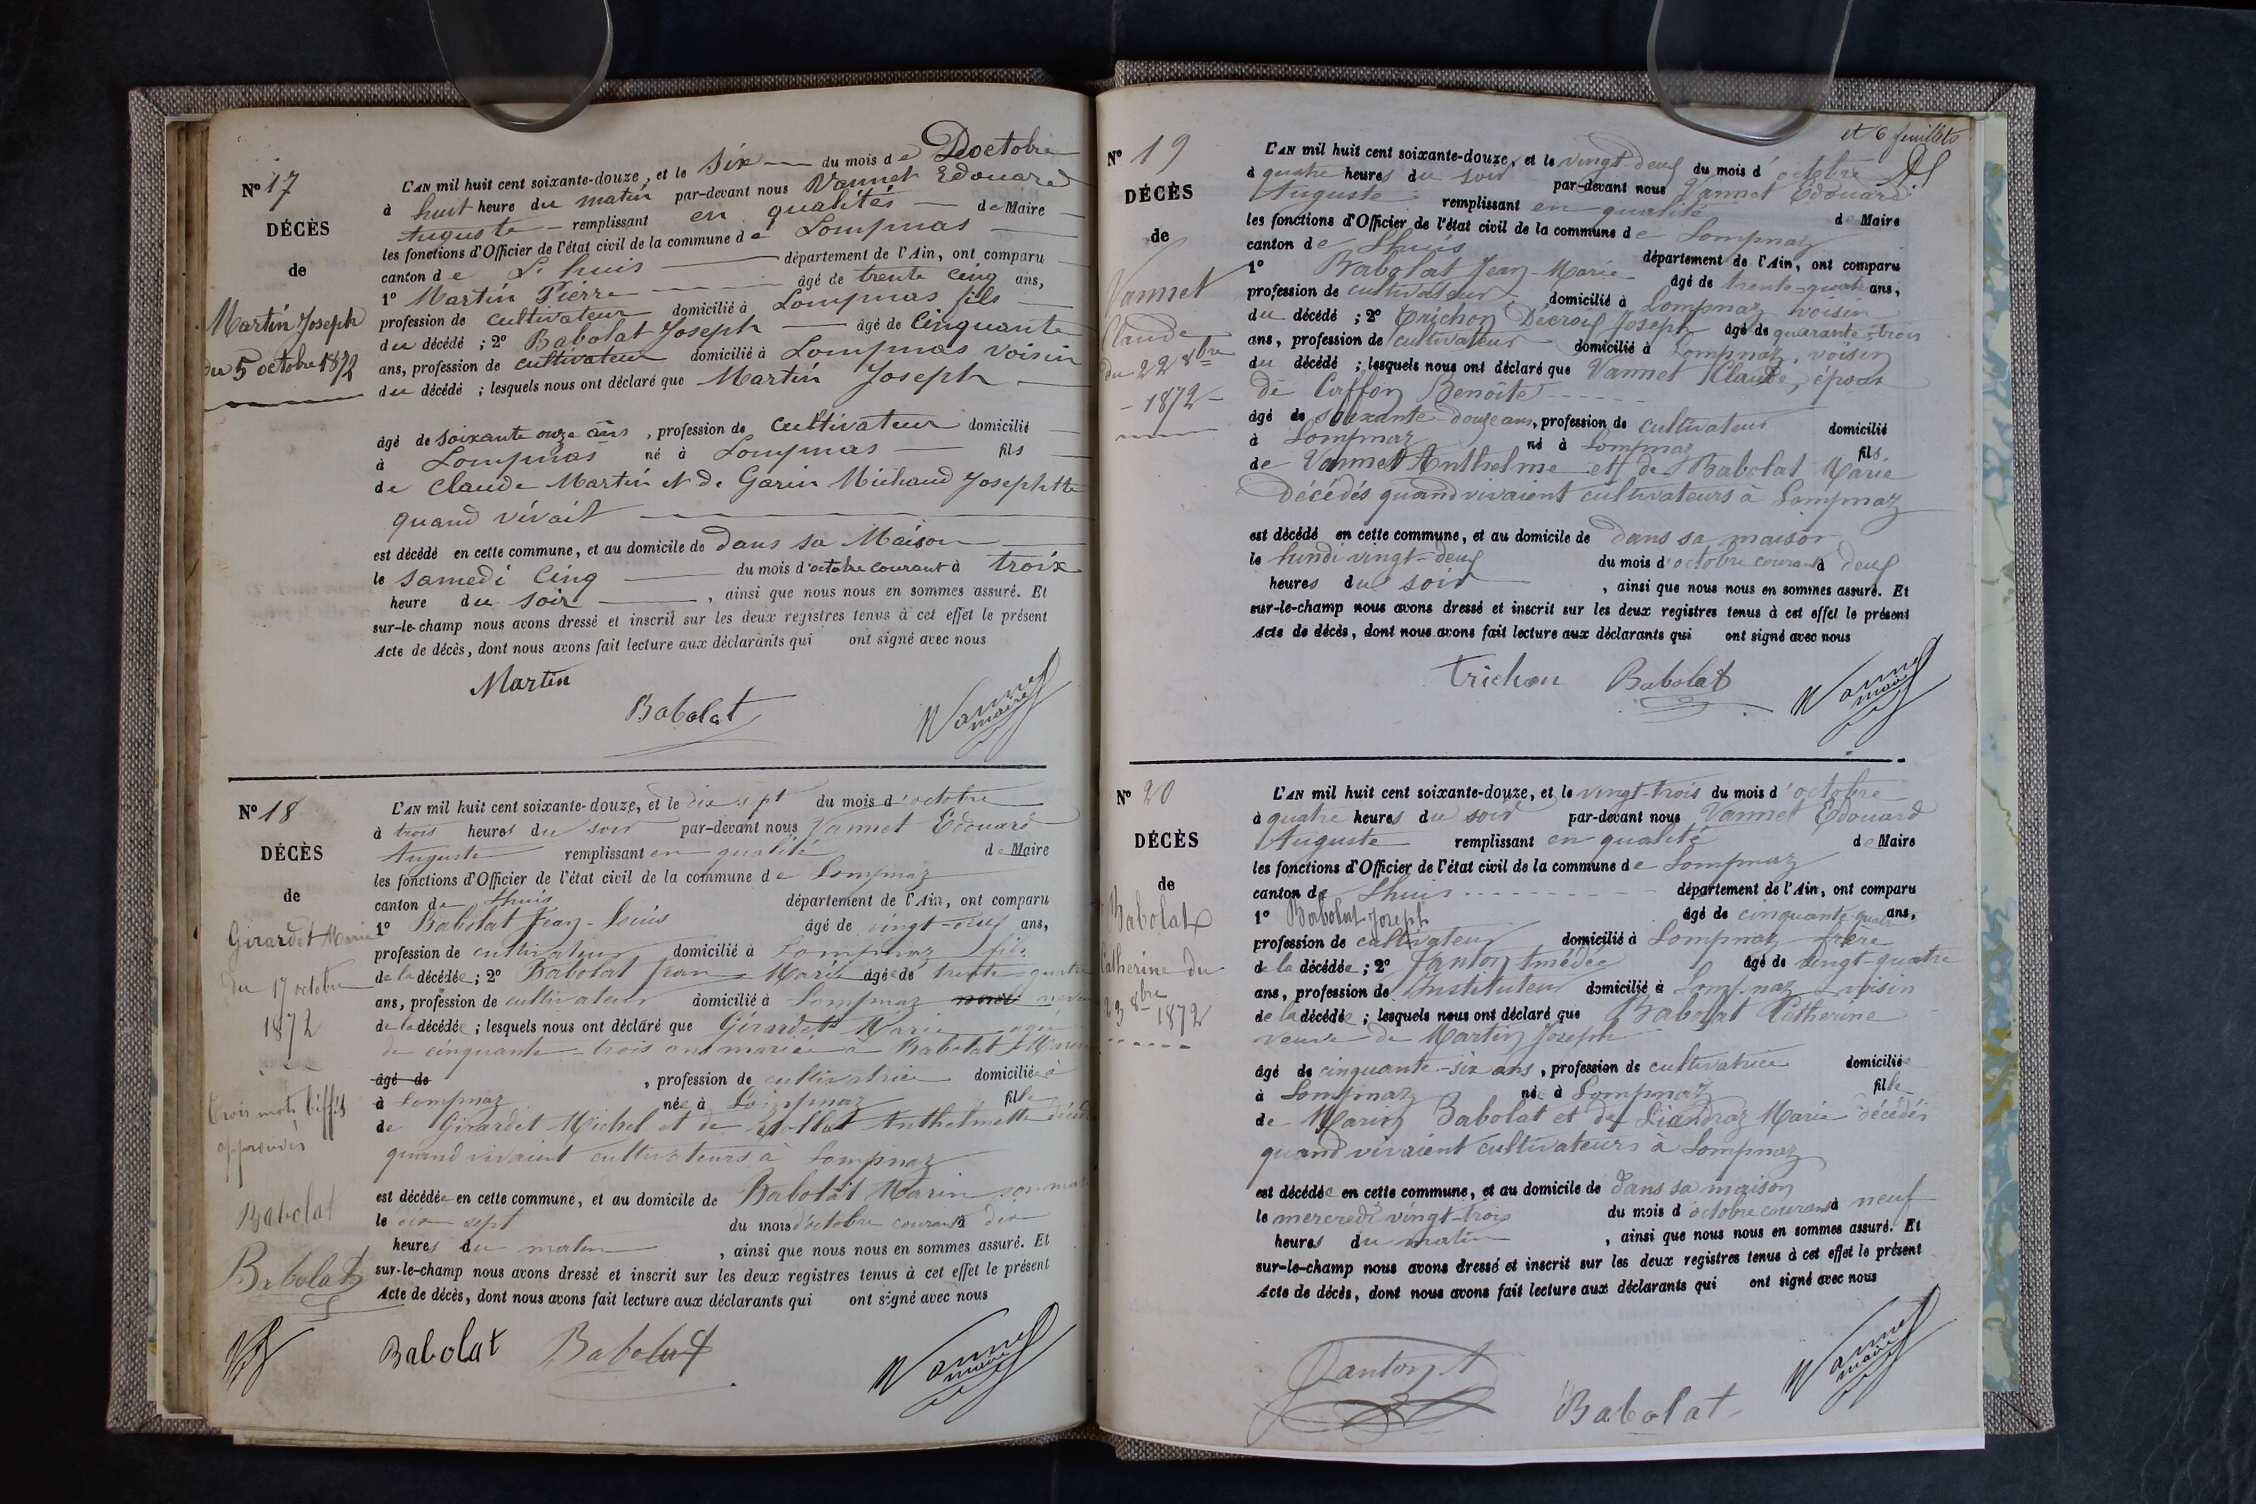 N° 17
DÉCÈS
de
Martin Joseph
du 5 octobre 1872
L'AN mil huit cent soixante-douze, et le six du mois de octobre
à huit heure du matin par-devant nous Vannet Edouard
Auguste remplissant en qualités de Maire
les fonctions d'Officier de l'état civil de la commune de Lompnas
canton de L'huis département de l'Ain, ont comparu
1° Martin Pierre âgé de trente cinq ans,
profession de cultivateur domicilié à Lompnas fils
du décédé ; 2° Babolat Joseph âgé de cinquante
ans, profession de cultivateur domicilié à Lompnas voisin
du décédé ; lesquels nous ont déclaré que Martin Joseph
âgé de soixante onze ans, profession de cultivateur domicilié
à Lompnas né à Lompnas fils
de Claude Martin et de Garin Michaud Josephtte
quand vivait
est décédé en cette commune, et au domicile de dans sa Maison
le samedi cinq du mois d'octobre courant à trois
heure du soir, ainsi que nous nous en sommes assuré. Et
sur-le-champ nous avons dressé et inscrit sur les deux registres tenus à cet effet le présent
Acte de décès, dont nous avons fait lecture aux déclarants qui ont signé avec nous
Martin
Babolat
Vannet
maire
N° 18
DÉCÈS
de
Girardet Marie
du 17 octobre
1872
trois mots biffés
approuvés
Babolat
Babolat
L'AN mil huit cent soixante-douze, et le dix sept du mois d'octobre
à trois heures du soir par-devant nous Vannet Edouard
Auguste remplissant en qualité de Maire
les fonctions d'Officier de l'état civil de la commune de Lompnaz
canton de Lhuis département de l'Ain, ont comparu
1° Babolat Jean-Louis âgé de vingt- ans,
profession de cultivateur domicilié à Lompnaz fils
de la décédée ; 2° Babolat Jean-Marie âgé de trente-quatre
ans, profession de cultivateur domicilié à Lompnaz neveu
de la décédée ; lesquels nous ont déclaré que Girardet Marie agée
de cinquante-trois ans mariée à Babolat Marin
âgé de , profession de cultivatrice domiciliée
à Lompnaz née à Lompnaz fille
de Girardet Michel et de Anthelmette
quand vivaient cultivateurs à Lompnaz
est décédée en cette commune, et au domicile de Babolat Marin son mari
le dix sept du mois d'octobre courant à dix
heures du matin, ainsi que nous nous en sommes assuré. Et
sur-le-champ nous avons dressé et inscrit sur les deux registres tenus à cet effet le présent
Acte de décès, dont nous avons fait lecture aux déclarants qui ont signé avec nous
Babolat Babolat
Vannet
maire
et 6 feuillets
N° 19
DÉCÈS
de
Vannet
Claude
du 22 8bre
- 1872 -
L'AN mil huit cent soixante-douze, et le vingt-deux du mois d'octobre
à quatre heures du soir par-devant nous Vannet Edouard
Auguste remplissant en qualité de Maire
les fonctions d'Officier de l'état civil de la commune de Lompnaz
canton de Lhuis département de l'Ain, ont comparu
1° Babolat Jean-Marie âgé de trente-quatre ans,
profession de cultivateur domicilié à Lompnaz voisin
du décédé ; 2° Trichon Décroix Joseph âgé de quarante-trois
ans, profession de cultivateur domicilié à Lompnaz, voisin
du décédé ; lesquels nous ont déclaré que Vannet Claude, époux
de Benoîte
âgé de soixante-douze ans, profession de cultivateur domicilié
à Lompnaz né à Lompnaz fils
de Vannet Anthelme et de Babolat Marie
Décédés quand vivaient cultivateurs à Lompnaz
est décédé en cette commune, et au domicile de dans sa maison
le lundi vingt-deux du mois d'octobre courant à deux
heures du soir, ainsi que nous nous en sommes assuré. Et
sur-le-champ nous avons dressé et inscrit sur les deux registres tenus à cet effet le présent
Acte de décès, dont nous avons fait lecture aux déclarants qui ont signé avec nous
Trichon Babolat
Vannet
maire
N° 20
DÉCÈS
de
Babolat
Catherine du
23 8bre
1872
L'AN mil huit cent soixante-douze, et le vingt-trois du mois d'octobre
à quatre heures du soir par-devant nous Vannet Edouard
Auguste remplissant en qualité de Maire
les fonctions d'Officier de l'état civil de la commune de Lompnaz
canton de Lhuis département de l'Ain, ont comparu
1° Babolat Joseph âgé de cinquante-quatre ans,
profession de cultivateur domicilié à Lompnaz frère
de la décédée ; 2° Janton Amédée âgé de vingt-quatre
ans, profession de Instituteur domicilié à Lompnaz voisin
de la décédée ; lesquels nous ont déclaré que Babolat Catherine
veuve de Martin Joseph
âgé de cinquante-six ans, profession de cultivatrice domiciliée
à Lompnaz née à Lompnaz fille
de Marin Babolat et de Liandraz Marie décédés
quand vivaient cultivateurs à Lompnaz
est décédée en cette commune, et au domicile de dans sa maison
le mercredi vingt-trois du mois d'octobre courant à neuf
heures du matin, ainsi que nous nous en sommes assuré. Et
sur-le-champ nous avons dressé et inscrit sur les deux registres tenus à cet effet le présent
Acte de décès, dont nous avons fait lecture aux déclarants qui ont signé avec nous
Janton A
Babolat
Vannet
maire